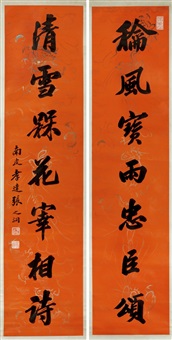 稐風寳雨忠臣頌
清雪槑花宰相詩
南皮孝達張之洞